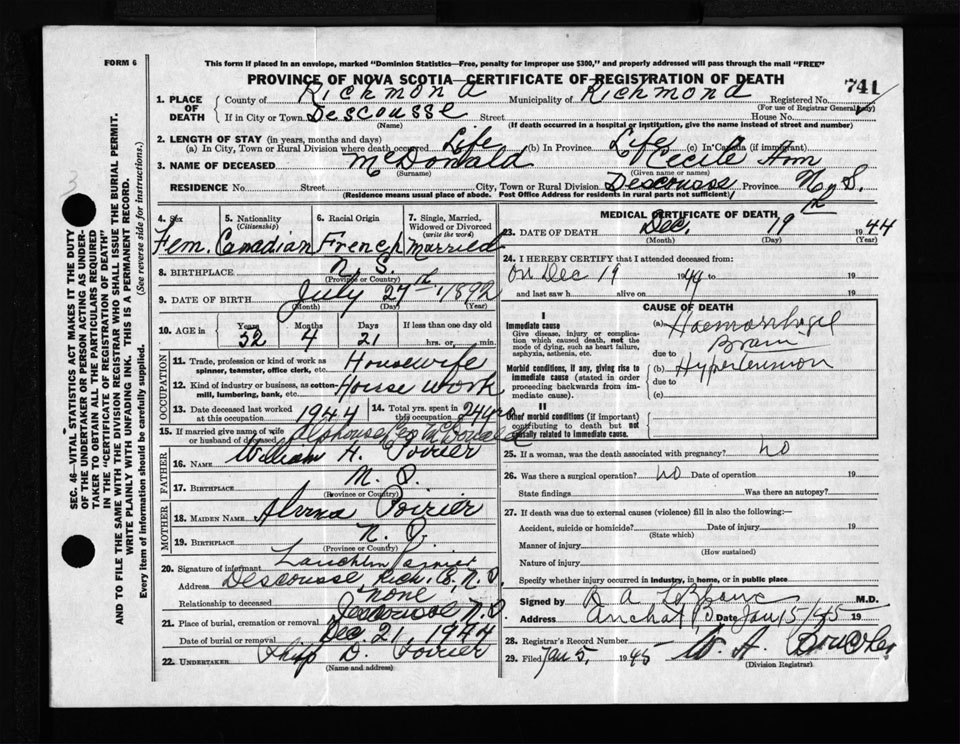 FORM 6
This form if placed in an envelope, marked "Dominion Statistics—Free, penalty for improper use $300," and properly addressed will pass through the mail "FREE"
PROVINCE OF NOVA SCOTIA—CERTIFICATE OF REGISTRATION OF DEATH
741
1. PLACE OF DEATH
County of Richmond Municipality of Richmond Registered No.
(For use of Registrar General only)
If in City or Town Descousse Street House No.
(Name) (If death occurred in a hospital or institution, give the name instead of street and number)
2. LENGTH OF STAY (in years, months and days)
(a) In City, Town or Rural Division where death occurred Life (b) In Province Life (c) In Canada (if immigrant)
3. NAME OF DECEASED McDonald Cecile Ann
(Surname) (Given name or names)
RESIDENCE No. Street City, Town or Rural Division Descousse Province N. S.
(Residence means usual place of abode. Post Office Address for residents in rural parts not sufficient)
4. Sex Fem.
5. Nationality (Citizenship) Canadian
6. Racial Origin French
7. Single, Married, Widowed or Divorced (write the word) Married
8. BIRTHPLACE N. S.
(Province or Country)
9. DATE OF BIRTH July 27th 1892
(Month) (Day) (Year)
10. AGE in Years 52 Months 4 Days 21 If less than one day old hrs. or min.
OCCUPATION
11. Trade, profession or kind of work as spinner, teamster, office clerk, etc. Housewife
12. Kind of industry or business, as cotton-mill, lumbering, bank, etc. House work
13. Date deceased last worked at this occupation 1944
14. Total yrs. spent in this occupation 24 yrs
15. If married give name of wife or husband of deceased Alphonse Geo McDonald
FATHER
16. NAME William H. Poirier
17. BIRTHPLACE N. S.
(Province or Country)
MOTHER
18. MAIDEN NAME Poirier
19. BIRTHPLACE N. S.
(Province or Country)
20. Signature of informant Poirier
Address Descousse, Rich. Co. N. S.
Relationship to deceased none
21. Place of burial, cremation or removal N.S.
Date of burial or removal Dec. 21, 1944
22. UNDERTAKER D. Poirier
(Name and address)
MEDICAL CERTIFICATE OF DEATH
23. DATE OF DEATH Dec. 19th 1944
(Month) (Day) (Year)
24. I HEREBY CERTIFY that I attended deceased from:
on Dec 19 1944 to 19
and last saw h alive on 19
CAUSE OF DEATH
I
Immediate cause
Give disease, injury or complication which caused death, not the mode of dying, such as heart failure, asphyxia, asthenia, etc.
(a) Haemorrhage Brain
due to
Morbid conditions, if any, giving rise to immediate cause (stated in order proceeding backwards from immediate cause).
(b) Hypertension
due to
(c)
II
Other morbid conditions (if important) contributing to death but not causally related to immediate cause.
25. If a woman, was the death associated with pregnancy? no
26. Was there a surgical operation? no Date of operation 19
State findings Was there an autopsy?
27. If death was due to external causes (violence) fill in also the following:—
Accident, suicide or homicide? Date of injury 19
(State which)
Manner of injury
(How sustained)
Nature of injury
Specify whether injury occurred in industry, in home, or in public place
Signed by A LeBlanc M.D.
Address Arichat Date Jan 5/45 19
28. Registrar's Record Number
29. Filed Jan 5, 1945 W. A.
(Division Registrar)
SEC. 46—VITAL STATISTICS ACT MAKES IT THE DUTY OF THE UNDERTAKER OR PERSON ACTING AS UNDERTAKER TO OBTAIN ALL THE PARTICULARS REQUIRED IN THE "CERTIFICATE OF REGISTRATION OF DEATH"
AND TO FILE THE SAME WITH THE DIVISION REGISTRAR WHO SHALL ISSUE THE BURIAL PERMIT.
WRITE PLAINLY WITH UNFADING INK. THIS IS A PERMANENT RECORD.
Every item of information should be carefully supplied. (See reverse side for instructions.)